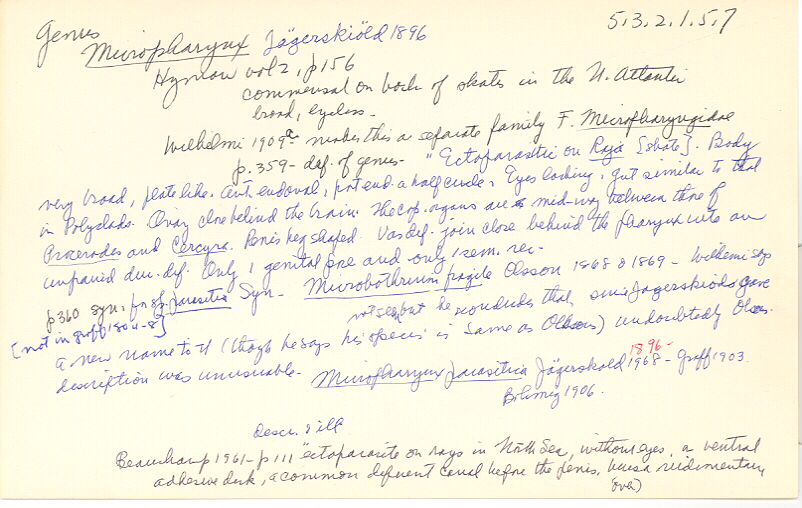 5.3.2.1.5.7
Genus
Micropharynx Jägerskiöld 1896
Hyman vol 2, p156
commensal on back of skates in the N. Atlantic
broad, eyeless -
Wilhelmi 1909a - makes this a separate family F. Micropharyngidae
p.359 - def. of genus - "Ectoparasitic on Raja [skate]. Body
very broad, plate like. Ant. end oval, post end a half circle. Eyes lacking, gut similar to that
in Polyclads. Ovary close behind the brain. The cop. organs are mid-way between those of
Procerodes and Cercyra. Penis peg shaped. Vas def. join close behind the pharynx into an
unpaired duc. def. Only 1 genital pore and only 1 sem. rec.
p360 syn. for sp. parasitica Syn - Microbothrium fragile Olsson 1868 & 1869 - Wilhelmi says
[not in Graff 1904-8] not seen but he concludes that since Jägerskiöld gave
a new name to it (though he says his species is same as Olssons) undoubtedly Olss.
description was unusuable. Micropharynx parasitica Jägerskiold 1896 1968 - Graff 1903.
Böhmig 1906.
descr. & ill
Beauchamp 1961 - p 111 "ectoparasite on rays in North Sea, without eyes, a ventral
adhesive disk, a common deferent canal before the penis, bursa rudimentary
(over)